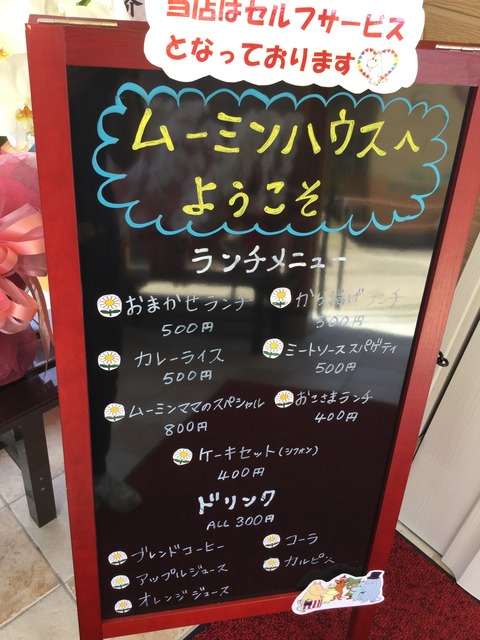 当店はセルフサービス
となっております
ムーミンハウスへ
ようこそ
ランチメニュー
おまかせランチ
500円
から揚げランチ
500円
カレーライス
500円
ミートソーススパゲティ
500円
ムーミンママのスペシャル
800円
おこさまランチ
400円
ケーキセット(シフォン)
400円
ドリンク
ALL 300円
ブレンドコーヒー
コーラ
アップルジュース
カルピス
オレンジジュース